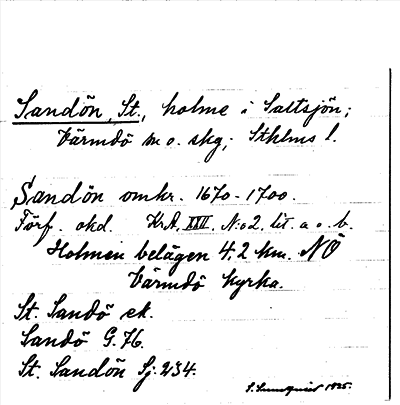 Sandön, St., holme i Saltsjön;
Värmdö m. o. skg; Sthlms l.
Sandön omkr. 1670-1700.
Förf. okd. KrA, XVII. N:o 2. lit. a o. b.
Holmen belägen 4,2 km. NÖ
Värmdö kyrka.
St. Sandö ek.
Sandö G. 76.
St. Sandön Sj. 234.
1925.